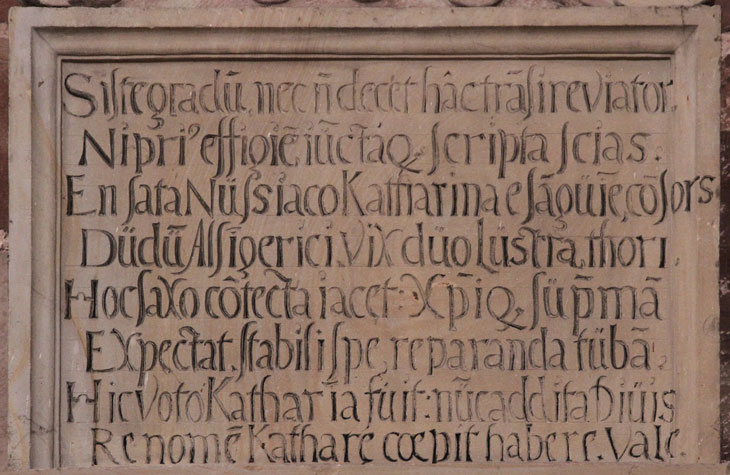 Siste gradū, nec n̄ decet hâc trāsire viator,
Ni pri⁹ effigiē iūctaq, scripta scias.
En sata Nüssiaco Katharina e sāgüīe, cōsors
Düdū Alsigerici, Vix düo Lustra, thori.
Hoc saxo cōtecta iacet: Xp̄iq, süp̄mā
Expectat, stabili spe, reparanda tübā.
Hic Voto Kathariā fuit: nūc addita Diüis
Re nomē Kathare coepit habere. Vale.